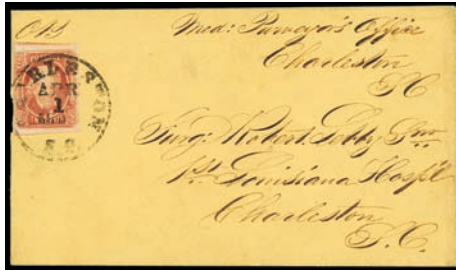 OB
Med: Purveyor's Office
Charleston
SC
CHARLESTON
APR
1
S.C.
Surg: Robert Lebby Sr.
1st Louisiana Hosp'l
Charleston
S.C.